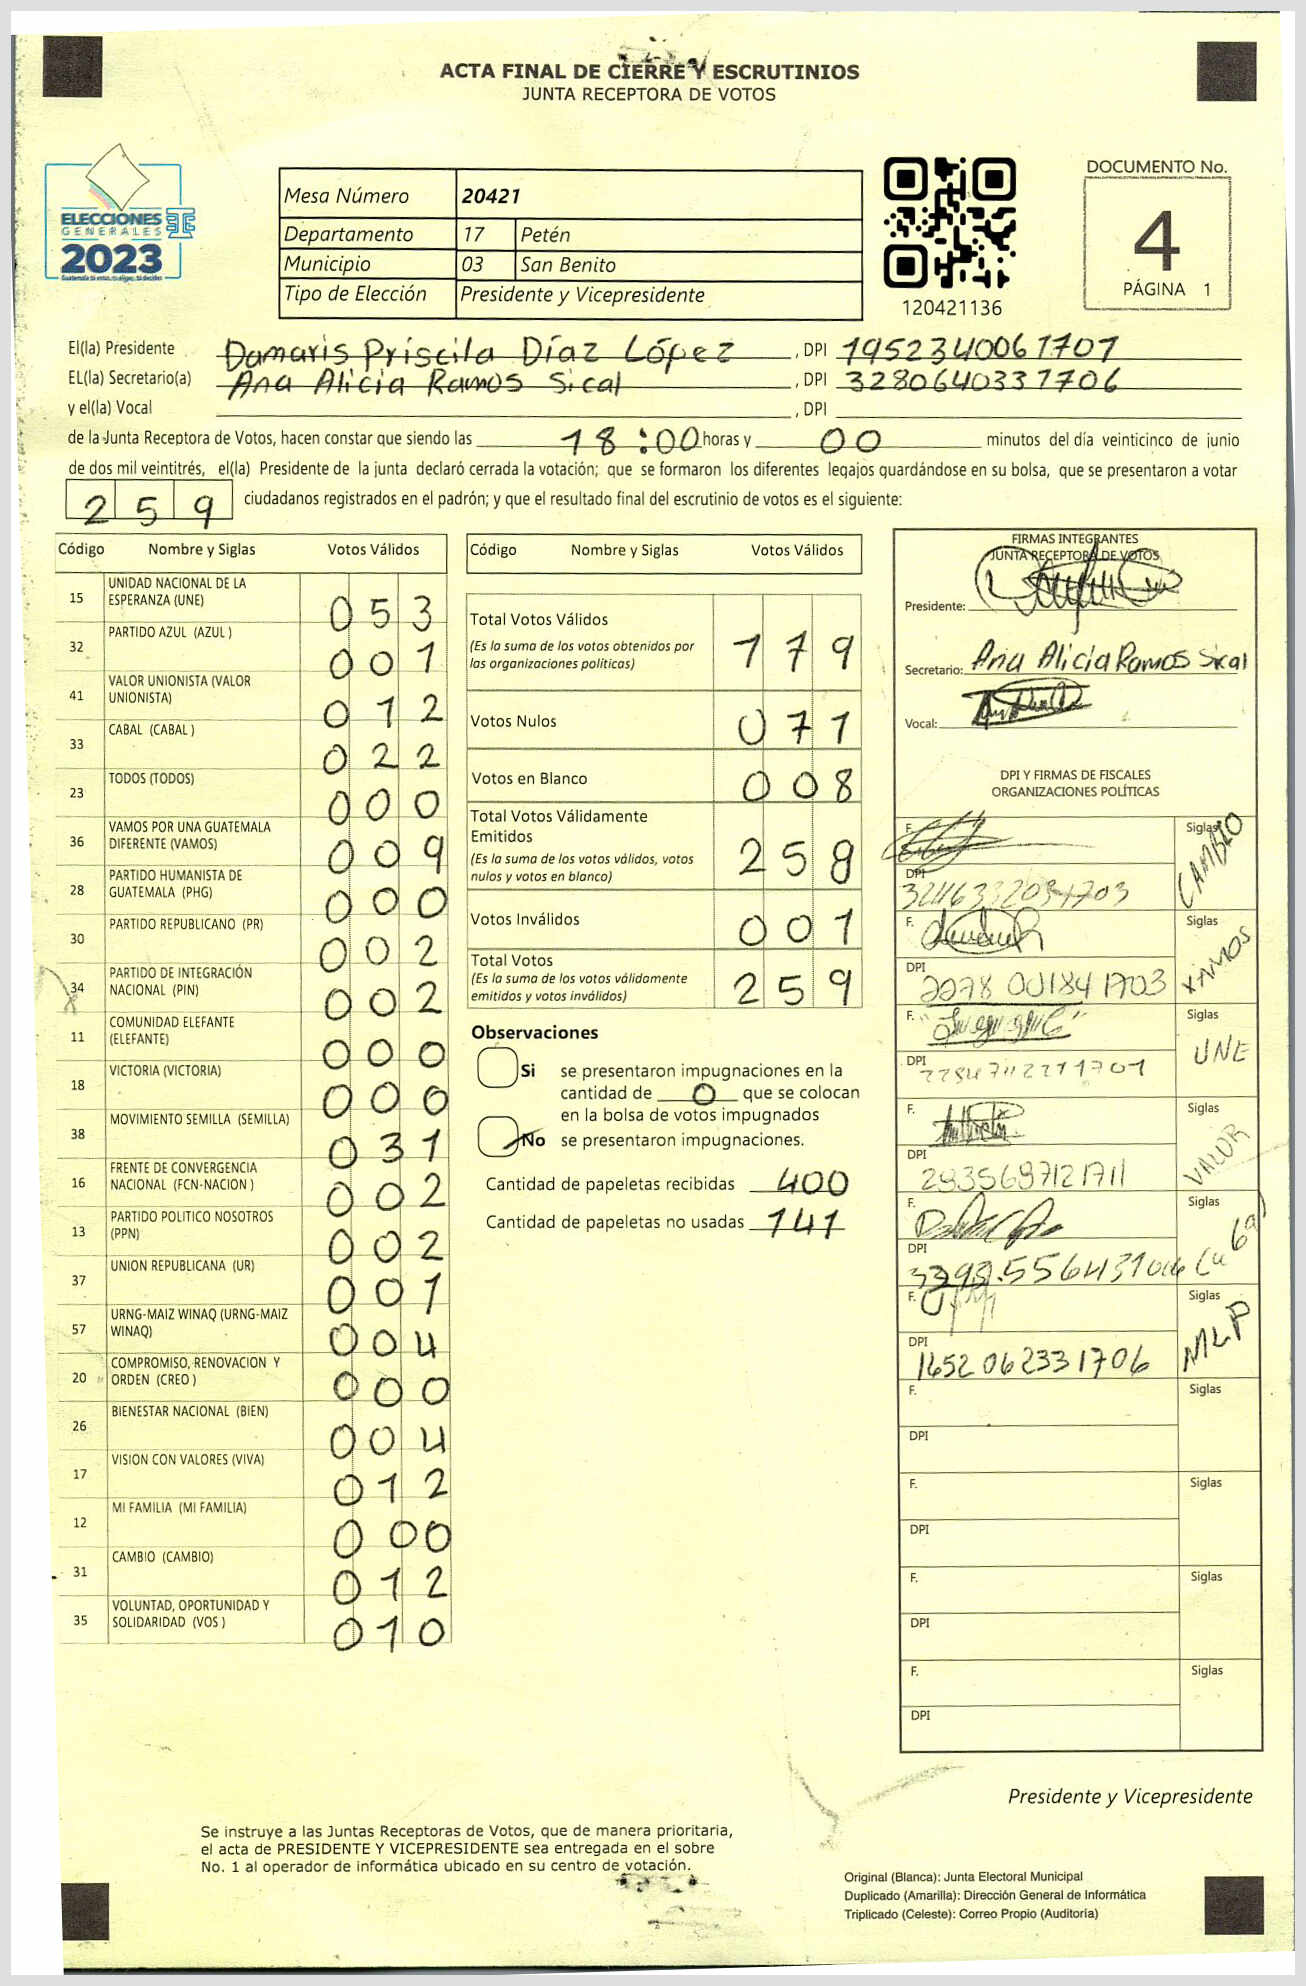 ACTA FINAL DE CIERRE Y ESCRUTINIOS
JUNTA RECEPTORA DE VOTOS
ELECCIONES
GENERALES
2023
Mesa Número 20421
Departamento 17 Petén
Municipio 03 San Benito
Tipo de Elección Presidente y Vicepresidente
120421136
DOCUMENTO No.
4
PÁGINA 1
El(la) Presidente Damaris Priscila Díaz López, DPI 1952340061701
EL(la) Secretario(a) Ana Alicia Ramos Sical, DPI 3280640331706
y el(la) Vocal , DPI
de la Junta Receptora de Votos, hacen constar que siendo las 18:00 horas y 00 minutos del día veinticinco de junio
de dos mil veintitrés, el(la) Presidente de la junta declaró cerrada la votación; que se formaron los diferentes legajos guardándose en su bolsa, que se presentaron a votar
259 ciudadanos registrados en el padrón; y que el resultado final del escrutinio de votos es el siguiente:
Código Nombre y Siglas Votos Válidos
15 UNIDAD NACIONAL DE LA ESPERANZA (UNE) 053
32 PARTIDO AZUL (AZUL ) 001
41 VALOR UNIONISTA (VALOR UNIONISTA) 012
33 CABAL (CABAL ) 022
23 TODOS (TODOS) 000
36 VAMOS POR UNA GUATEMALA DIFERENTE (VAMOS) 009
28 PARTIDO HUMANISTA DE GUATEMALA (PHG) 000
30 PARTIDO REPUBLICANO (PR) 002
34 PARTIDO DE INTEGRACIÓN NACIONAL (PIN) 002
11 COMUNIDAD ELEFANTE (ELEFANTE) 000
18 VICTORIA (VICTORIA) 000
38 MOVIMIENTO SEMILLA (SEMILLA) 031
16 FRENTE DE CONVERGENCIA NACIONAL (FCN-NACION ) 002
13 PARTIDO POLITICO NOSOTROS (PPN) 002
37 UNION REPUBLICANA (UR) 001
57 URNG-MAIZ WINAQ (URNG-MAIZ WINAQ) 004
20 COMPROMISO, RENOVACION Y ORDEN (CREO ) 000
26 BIENESTAR NACIONAL (BIEN) 004
17 VISION CON VALORES (VIVA) 012
12 MI FAMILIA (MI FAMILIA) 000
31 CAMBIO (CAMBIO) 012
35 VOLUNTAD, OPORTUNIDAD Y SOLIDARIDAD (VOS ) 010
Código Nombre y Siglas Votos Válidos
Total Votos Válidos 179
(Es la suma de los votos obtenidos por
las organizaciones políticas)
Votos Nulos 071
Votos en Blanco 008
Total Votos Válidamente
Emitidos 258
(Es la suma de los votos válidos, votos
nulos y votos en blanco)
Votos Inválidos 001
Total Votos 259
(Es la suma de los votos válidamente
emitidos y votos inválidos)
Observaciones
Si se presentaron impugnaciones en la
cantidad de 0 que se colocan
en la bolsa de votos impugnados
No se presentaron impugnaciones.
Cantidad de papeletas recibidas 400
Cantidad de papeletas no usadas 141
FIRMAS INTEGRANTES
JUNTA RECEPTORA DE VOTOS
Presidente:
Secretario: Ana Alicia Ramos Sical
Vocal:
DPI Y FIRMAS DE FISCALES
ORGANIZACIONES POLÍTICAS
F. Siglas CAMBIO
DPI
F. Siglas VAMOS
DPI
F. Siglas UNE
DPI
F. Siglas VALOR
DPI 2935697121711
F. Siglas
DPI
F. Siglas MLP
DPI 1652062331706
F. Siglas
DPI
F. Siglas
DPI
F. Siglas
DPI
F. Siglas
DPI
Presidente y Vicepresidente
Se instruye a las Juntas Receptoras de Votos, que de manera prioritaria,
el acta de PRESIDENTE Y VICEPRESIDENTE sea entregada en el sobre
No. 1 al operador de informática ubicado en su centro de votación.
Original (Blanca): Junta Electoral Municipal
Duplicado (Amarilla): Dirección General de Informática
Triplicado (Celeste): Correo Propio (Auditoría)